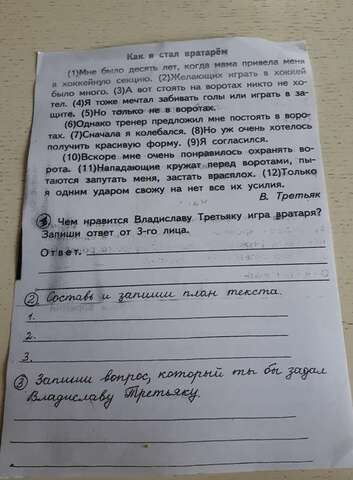 Как я стал вратарём
(1)Мне было десять лет, когда мама привела меня
в хоккейную секцию. (2)Желающих играть в хоккей
было много. (3)А вот стоять на воротах никто не хо-
тел. (4)Я тоже мечтал забивать голы или играть в за-
щите. (5)Но только не в воротах.
(6)Однако тренер предложил мне постоять в воро-
тах. (7)Сначала я колебался. (8)Но уж очень хотелось
получить красивую форму. (9)Я согласился.
(10)Вскоре мне очень понравилось охранять во-
рота. (11)Нападающие кружат перед воротами, пы-
таются запутать меня, застать врасплох. (12)Только
я одним ударом свожу на нет все их усилия.
В. Третьяк
1 Чем нравится Владиславу Третьяку игра вратаря?
Запиши ответ от 3-го лица.
Ответ.
2 Составь и запиши план текста.
1.
2.
3.
3 Запиши вопрос, который ты бы задал
Владиславу Третьяку.